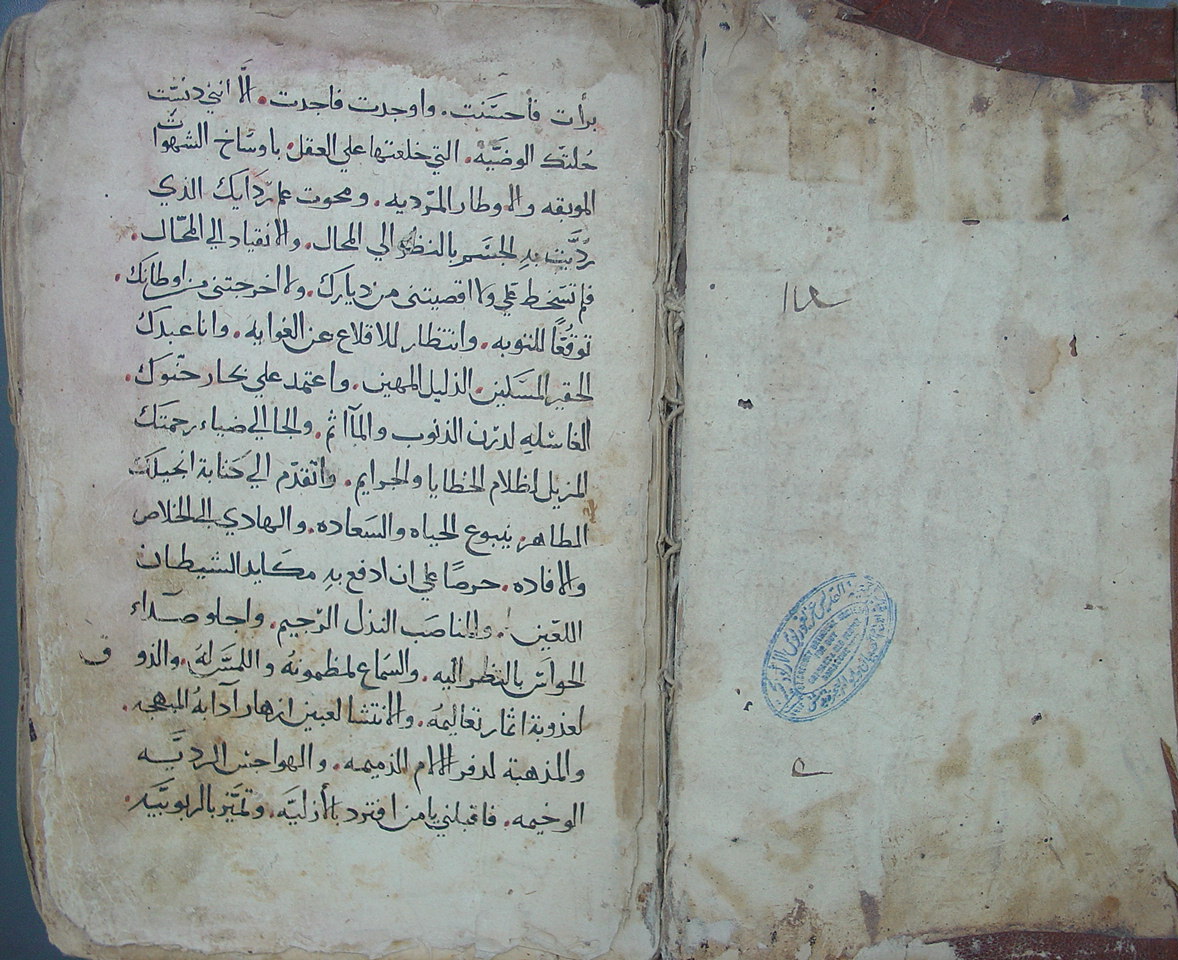 برأت فأحسَنت. واوجدت فاجدت. الَّا انني دنسَّت
حُلتّك الوضيَّه. التي خلعتها علي العقل. باوسَاخ الشهوات
الموبقه والاوطار المرّديه. ومحوت عم رَدَايك الذي
ردَّيت بهِ الجسَم بالنظر الي المحال. والانقياد الي المحّال.
فلم تسَخط علي ولا اقصيتني من ديارك. ولا اخرجتني من اوطانك.
توقعُّاً للتوبه. وانتظار للاقلاع عن الغوايه. وانا عبدكَ
الحقير المسَكين. الذليل المهين. واعتمد علي بحار حنّوكَ.
الغاسَله لدرَن الذنوب والمآاثم. والجا الي ضياء رحمتك
المزيل لظلام الخطايا والجرايم. واتقدّم الي كتابة انجيلك
الطاهر. ينبوع الحياه والسَعاده. والهادي الي الخلاص
والافاده. حرصًا علي ان ادفع بهِ مكايد الشيطان
اللعّين. والمناصَب النذل الرّجيم. واجلو صَداء
الحواسّ بالنظر اليه. والسَماع لمظمونهُ واللمسَ لهَ. والذو
ق
لعذوبة اثمار تعاليمهُ. والانتشا لعبير ازهار آدابهُ المبهجه.
والمذهبة لدفر الالام الذميمه. والهواجس الرديَّه
الوخيمه. فاقبلني يا من افترد بالأزليَّه. وتميَّز بالربوبيَّه.